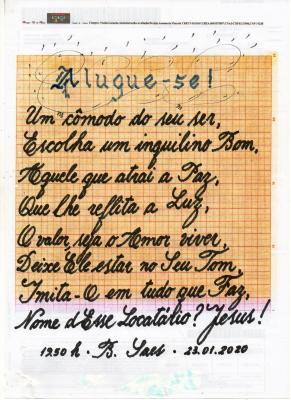 Alugue-se!
Um cômodo do seu ser,
Escolha um inquilino Bom,
Aquele que atrai a Paz,
Que lhe reflita a Luz,
O valor seja o Amor viver,
Deixe Ele estar no Seu Tom,
Imita-O em tudo que Faz,
Nome dEsse Locatário? Jesus!
1950 h • B. Saes • 23.01.2020